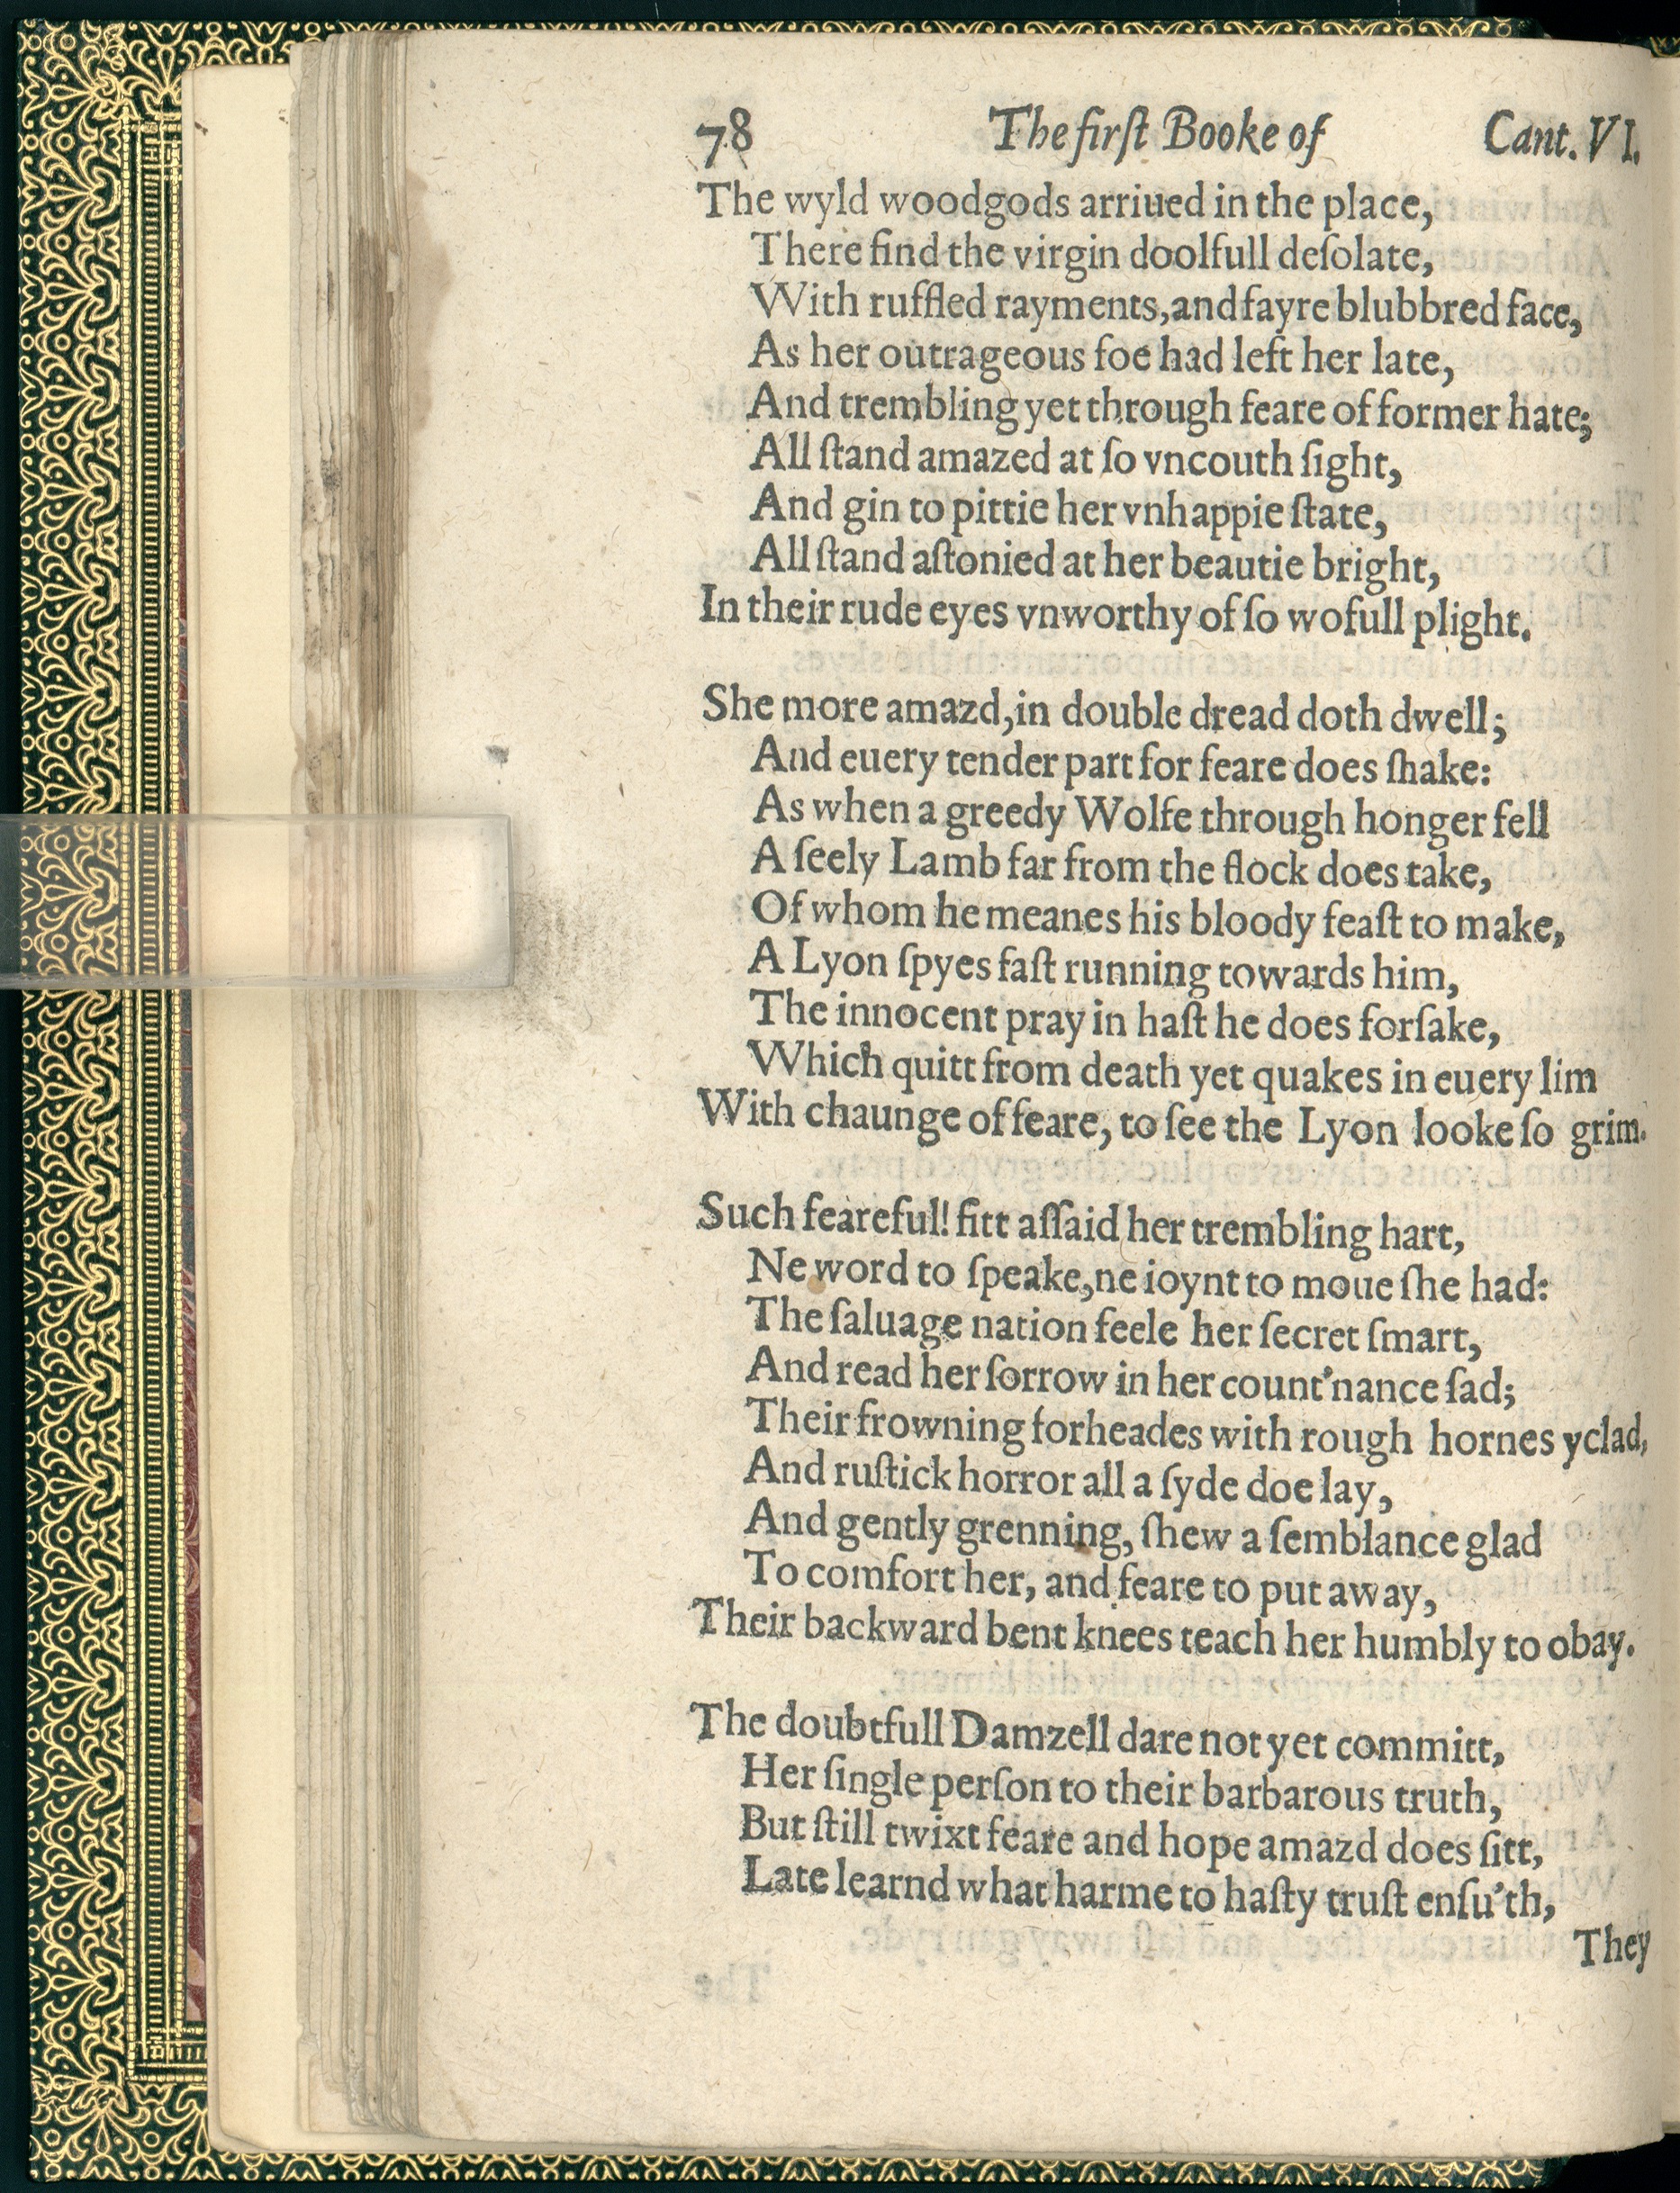 78 The firſt Booke of Cant. VI.
The wyld woodgods arriued in the place,
There find the virgin doolfull deſolate,
With ruffled rayments, and fayre blubbred face,
As her outrageous foe had left her late,
And trembling yet through feare of former hate;
All ſtand amazed at ſo vncouth ſight,
And gin to pittie her vnhappie ſtate,
All ſtand aſtonied at her beautie bright,
In their rude eyes vnworthy of ſo wofull plight.
She more amazd, in double dread doth dwell;
And euery tender part for feare does ſhake:
As when a greedy Wolfe through honger fell
A ſeely Lamb far from the flock does take,
Of whom he meanes his bloody feaſt to make,
A Lyon ſpyes faſt running towards him,
The innocent pray in haſt he does forſake,
Which quitt from death yet quakes in euery lim
With chaunge of feare, to ſee the Lyon looke ſo grim.
Such feareful! fitt aſſaid her trembling hart,
Ne word to ſpeake, ne ioynt to moue ſhe had:
The ſaluage nation feele her ſecret ſmart,
And read her ſorrow in her count'nance ſad;
Their frowning forheades with rough hornes yclad,
And ruſtick horror all a ſyde doe lay,
And gently grenning, ſhew a ſemblance glad
To comfort her, and feare to put away,
Their backward bent knees teach her humbly to obay.
The doubtfull Damzell dare not yet committ,
Her ſingle perſon to their barbarous truth,
But ſtill twixt feare and hope amazd does ſitt,
Late learnd what harme to haſty truſt enſu'th,
They